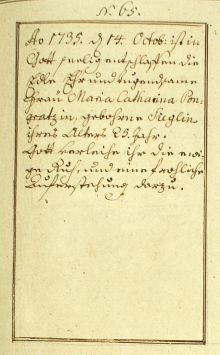 No. 65.
Ao 1735. d 14. Octob: ist in
Gott seelig entschlaffen die
Edle Ehr und tugendsame
Frau Maria Catharina Pon-
gratzin, gebohrne Rieglin
ihres Alters 29. Jahr.
Gott verleihe ihr die ewi-
ge Ruh, und eine fröhliche
Aufferstehung darzu.